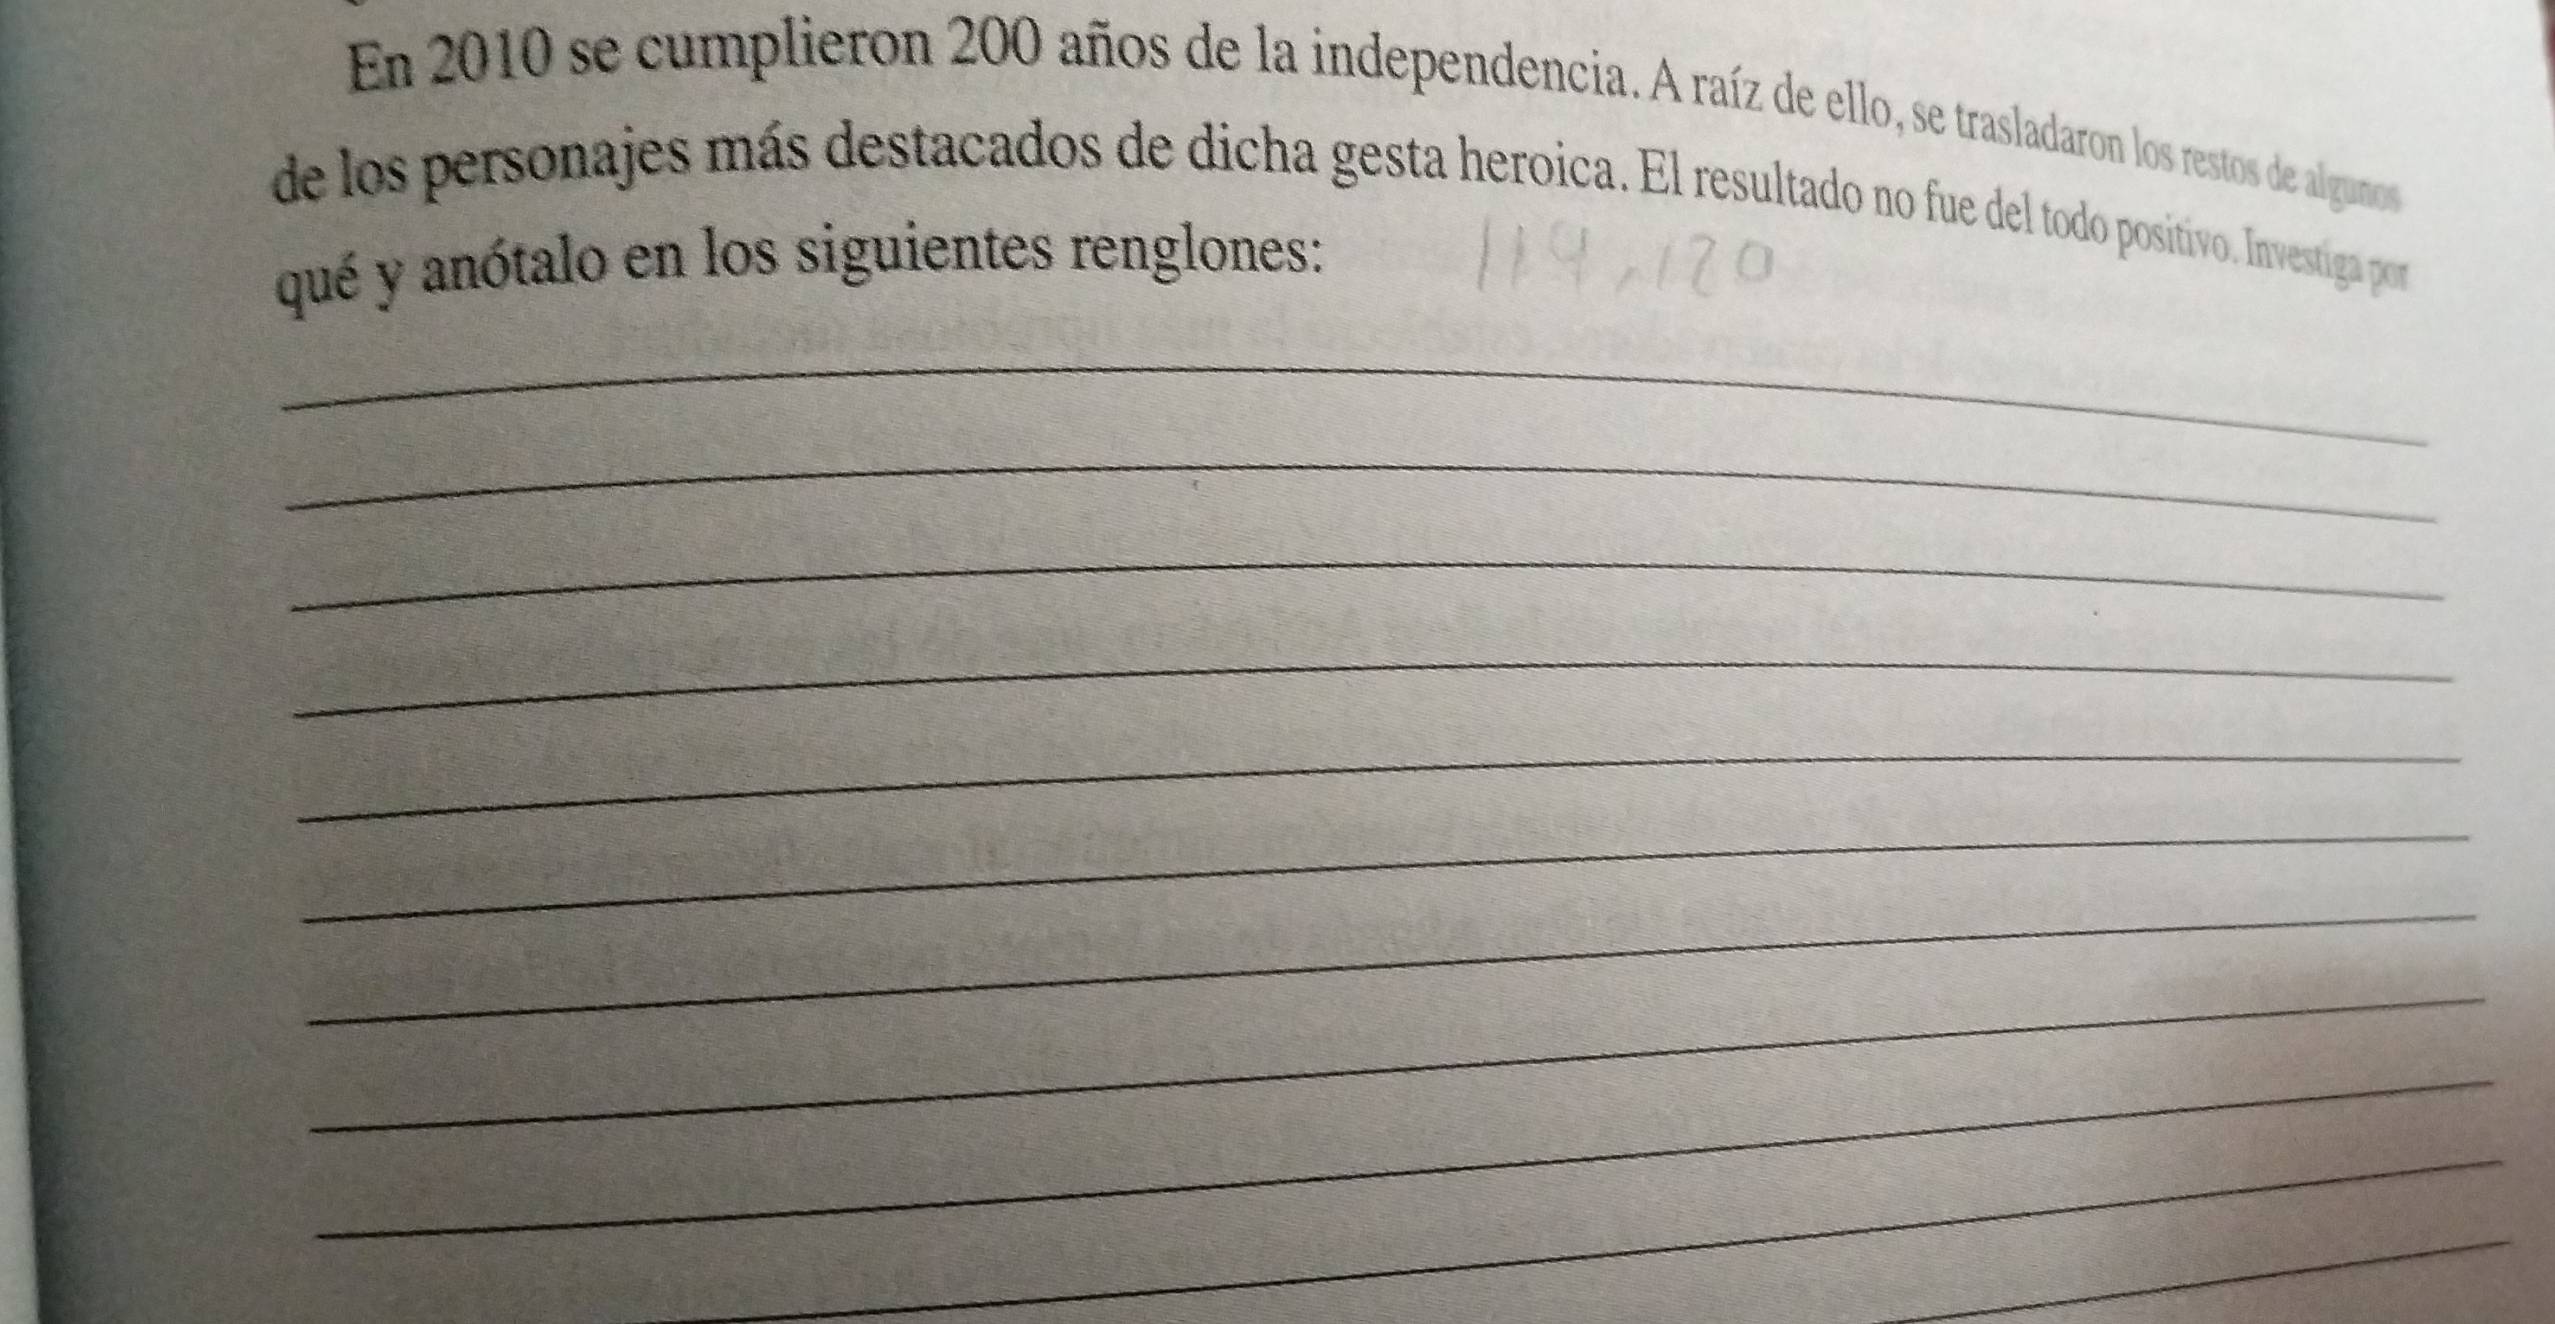 En 2010 se cumplieron 200 años de la independencia. A raíz de ello, se trasladaron los restos de algunos
de los personajes más destacados de dicha gesta heroica. El resultado no fue del todo positivo. Investiga por
qué y anótalo en los siguientes renglones: 119,120